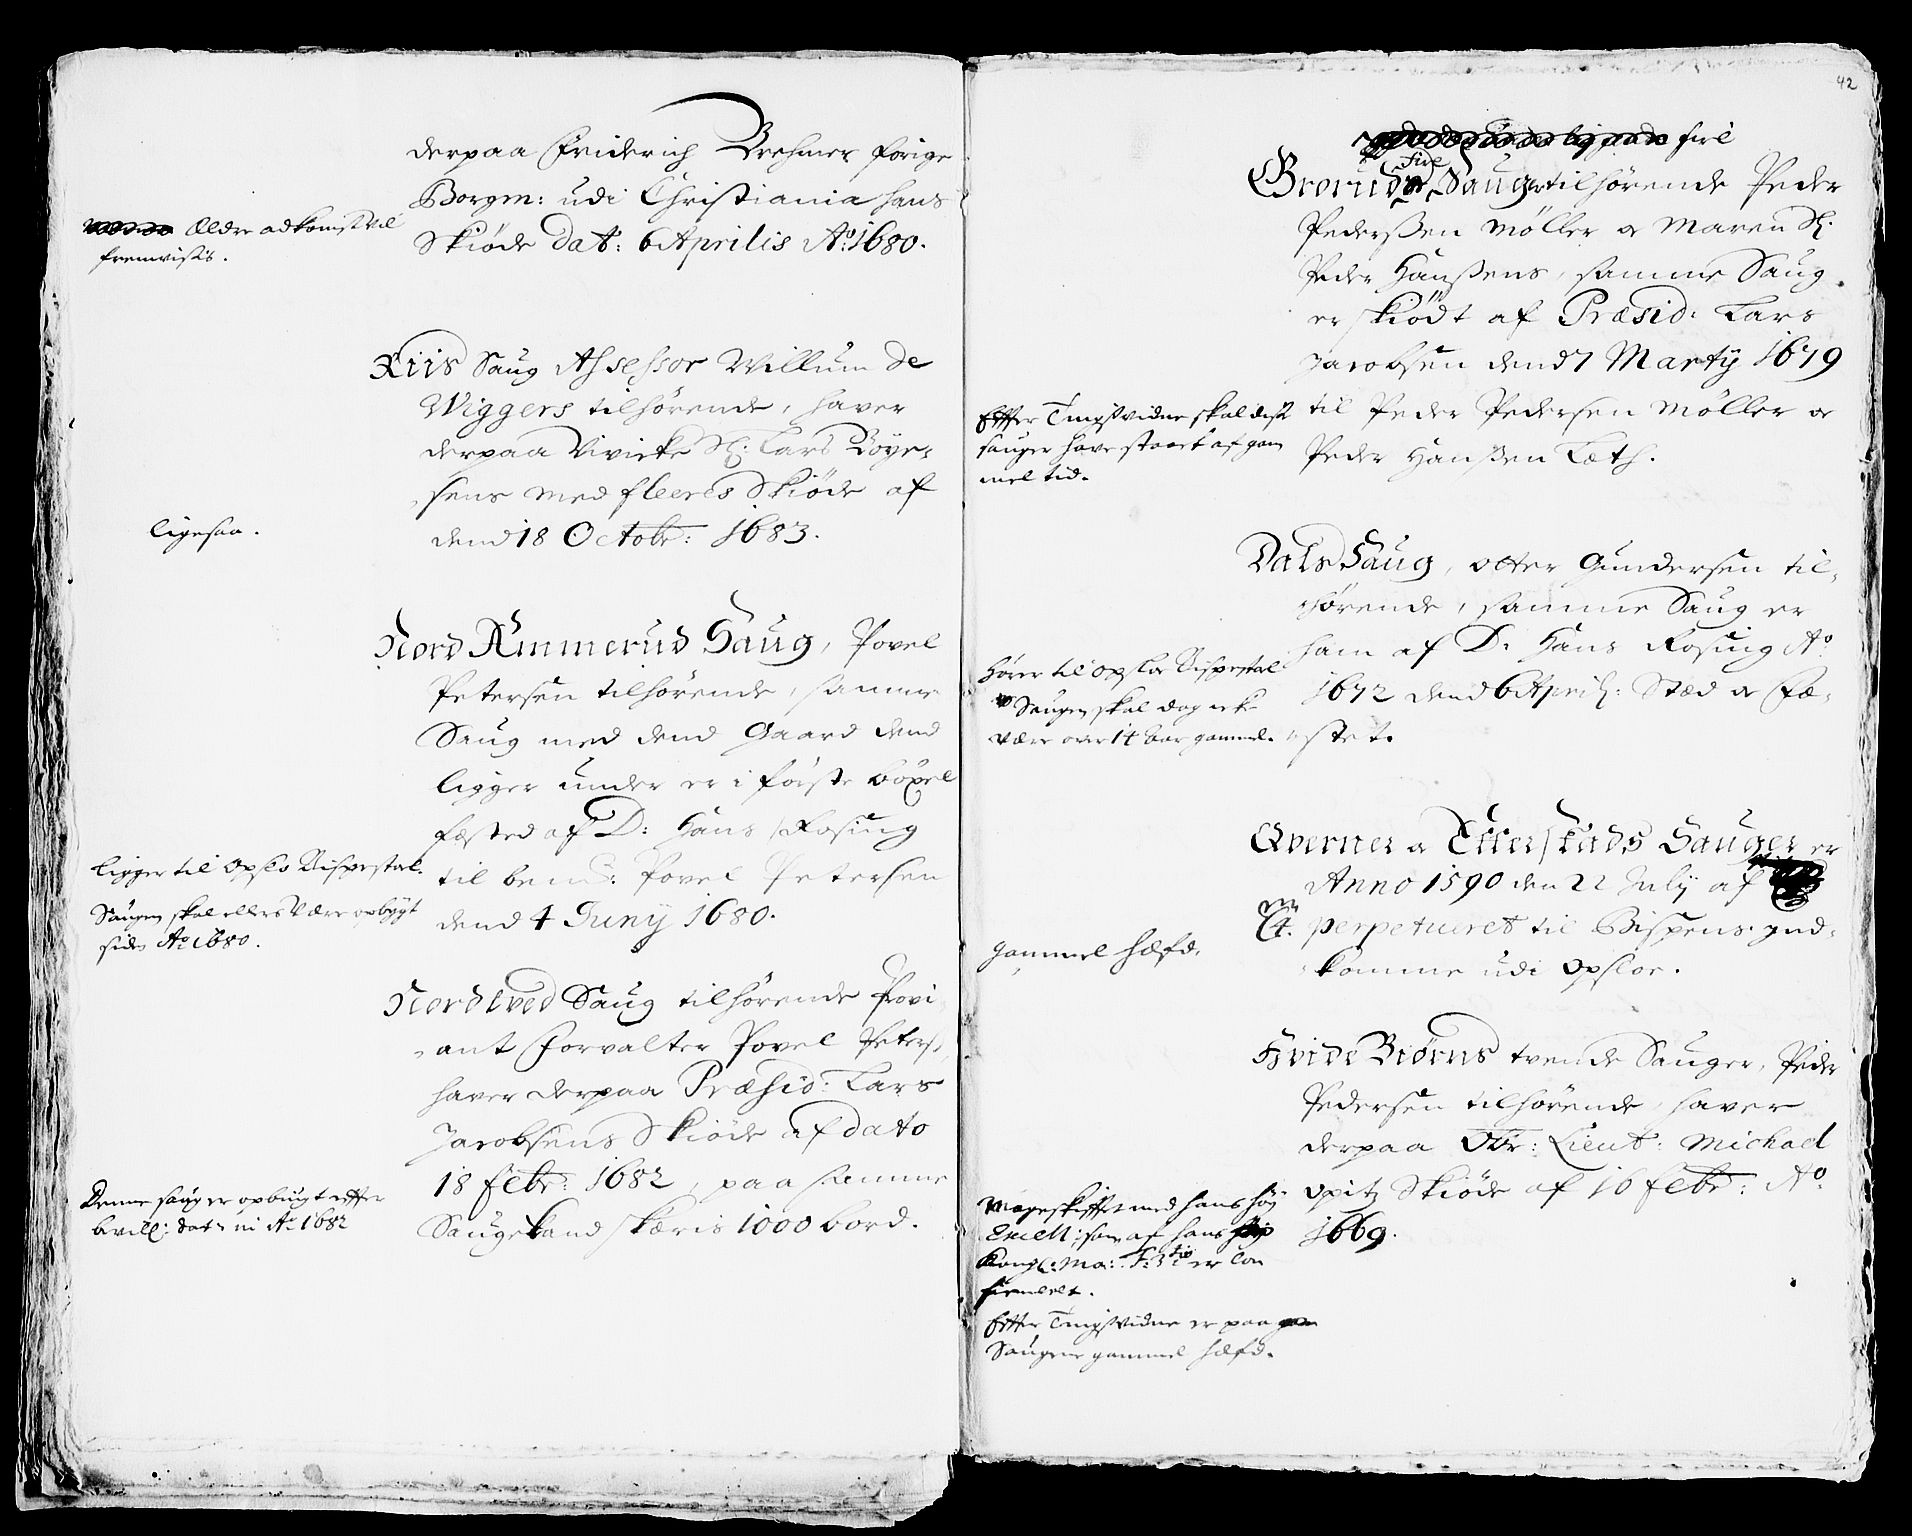 derpaa Friderich Brehmer forige
Borgm: udi Christiania hans
Skiøde dat: 6 Aprilis Ao. 1680.
Ældre adkomst vil
fremvisis.
Riis Saug Assessor Willum de
Wiggers tilhørende, haver
derpaa Vivicke Sl: Lars Böye-
sens med fleeres Skiøde af
dend 18 Octobr: 1683.
ligesaa.
Nord Ammerud Saug, Povel
Petersen tilhørende, samme
Saug med dend Gaard dend
ligger under er i förste böxel
fæsted af D: Hans Rosing
til bemte: Povel Petersen
dend 4 Juny 1680.
ligger til Opslo Bispestol.
Saugen skal ellers være opbygt
siden Ao 1680.
Nordtved Saug tilhørende Provi-
ant Forvalter Povel Peters:
haver derpaa Præsid: Lars
Jacobsens Skiöde af dato
18 febr: 1682, paa samme
Saug kand skæris 1000 bord.
Denne saug er opbugt effter
bevill: dat: Ao 1682
42
fire
Grorud Fire Sauger tilhørende Peder
Pederssen Møller oc Maren Sl.
Peder Hanssens, samme Saug
er skiödt af Præsid: Lars
Jacobsen dend 7 Marty 1679
til Peder Pedersen Møller oc
Peder Hanssen Læth.
Effter Tingsvidne skal disse
sauger have staaet af gam
mel tid.
Dals Saug, Otter Gundersen til-
hørende, samme Saug er
ham af D. Hans Rosing Ao.
1672 dend 6 April: Stæd oc Fæ-
stet.
hører til Opslo Bispestol
Saugen skal dog icke
være over 14 aar gammel.
Qverner oc Etterstads Sauger er
Anno 1590 den 22 July af
C4. perpetueret til Bispens ind-
komme udi Opsloe.
gammel hæfd.
Hvide Biørns tvende Sauger, Peder
Pedersen tilhørende, haver
derpaa Obr: Lieut: Michael
Opitz Skiöde af 10 febr: Ao.
1669.
Mageskifftet med hans höy
Excell: som af hans
Kongl: Ma: F: 3tio er con
firmelt.
Effter Tingsvidne er paa
Saugene gammel hæfd.